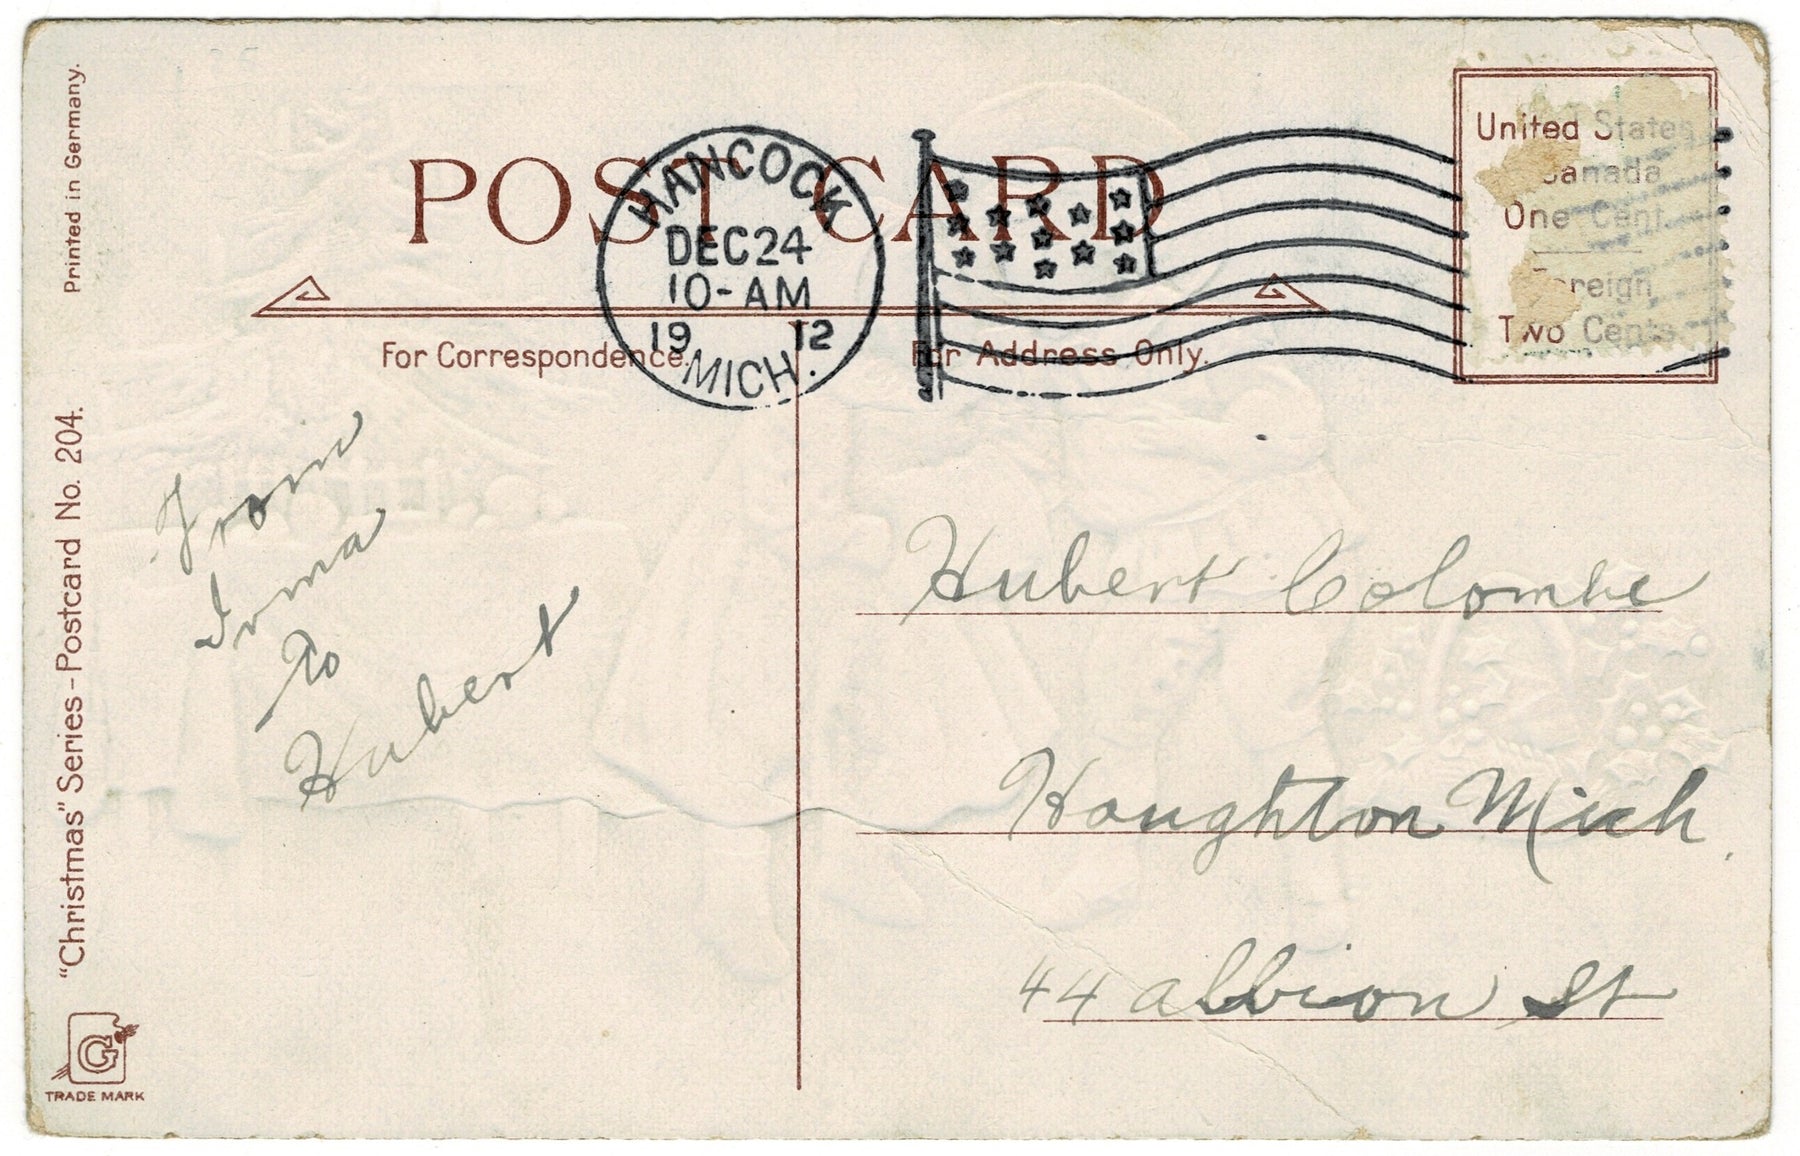 Printed in Germany.
"Christmas" Series-Postcard No. 204.
G
TRADE MARK
POST CARD
HANCOCK
DEC 24
10-AM
19 12
MICH.
For Correspondence.
For Address Only.
United States
Canada
One Cent.
Foreign
Two Cents.
From
Irma
To
Hubert
Hubert Colombe
Houghton Mich.
44 Albion St